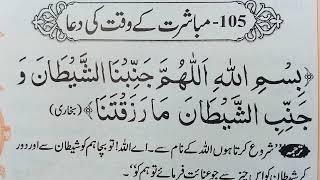 105- مباشرت کے وقت کی دعا
﴿بِسْمِ اللهِ اَللّٰهُمَّ جَنِّبْنَا الشَّيْطَانَ وَ
جَنِّبِ الشَّيْطَانَ مَا رَزَقْتَنَا﴾ (بخاری)
ترجمہ شروع کرتا ہوں اللہ کے نام سے۔ اے اللہ! تو بچا ہم کو شیطان سے اور دور
کر شیطان کو اس چیز سے جو عنایت فرمائے تو ہم کو“۔